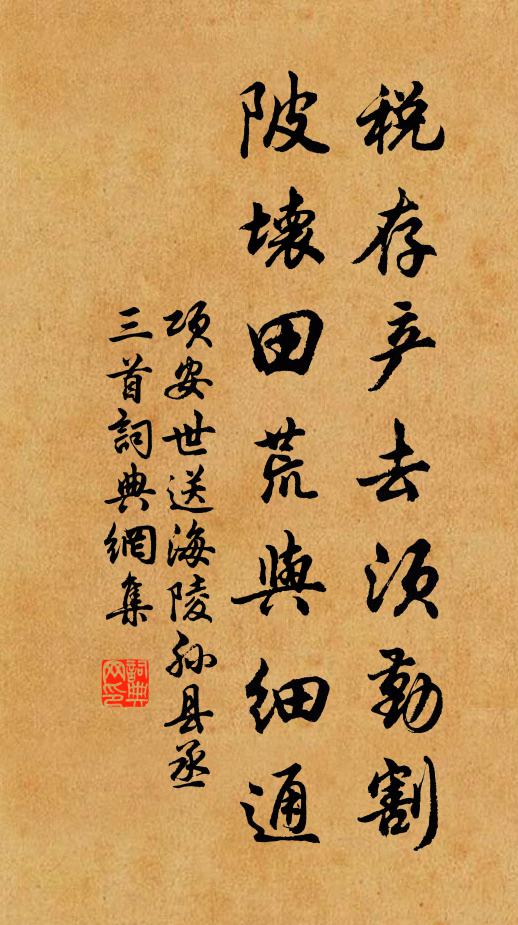 税存产去须勤割
陂壊田荒與细通
项安世送海陵孙县丞
三首詞典網集
詞典
网印